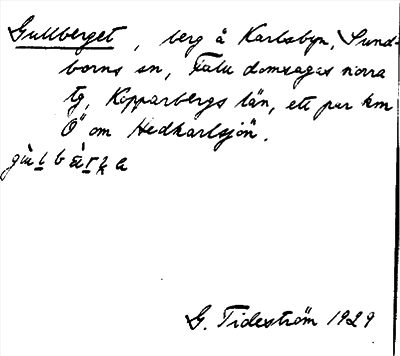 Gullberget, berg å Karlsbyn, Sund-
borns sn, Falu domsagas norra
tg, Kopparbergs län, ett par km
Ö om Hedkarlsjön.
G. Tideström 1929